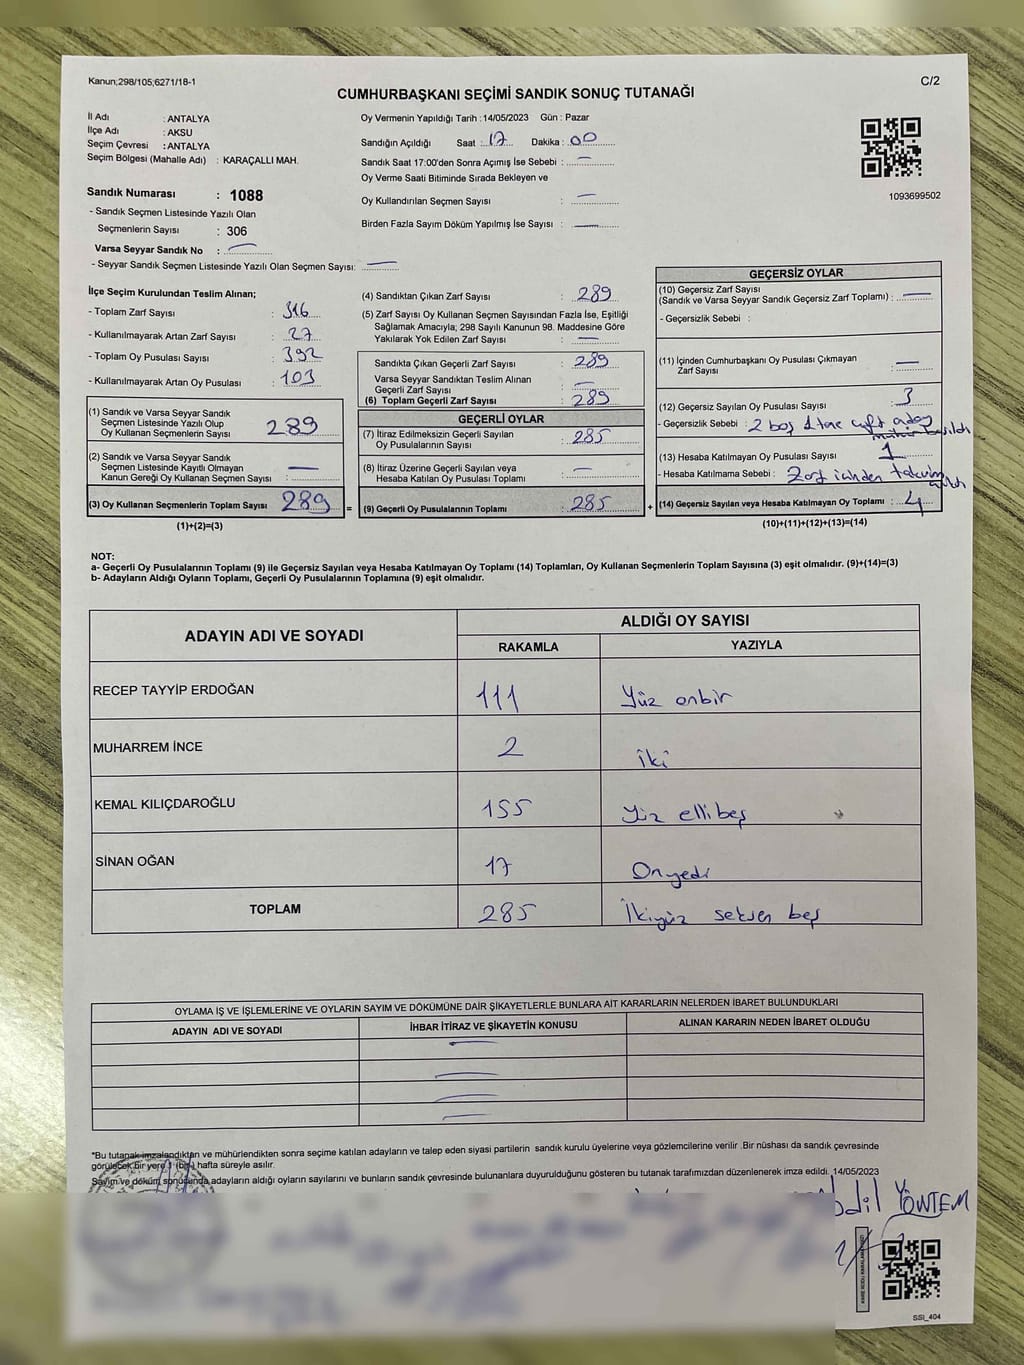 Kanun;298/105;6271/18-1
C/2
CUMHURBAŞKANI SEÇİMİ SANDIK SONUÇ TUTANAĞI
İl Adı : ANTALYA
İlçe Adı : AKSU
Seçim Çevresi : ANTALYA
Seçim Bölgesi (Mahalle Adı) : KARAÇALLI MAH.
Sandık Numarası : 1088
- Sandık Seçmen Listesinde Yazılı Olan
Seçmenlerin Sayısı : 306
Varsa Seyyar Sandık No : —
- Seyyar Sandık Seçmen Listesinde Yazılı Olan Seçmen Sayısı: —
Oy Vermenin Yapıldığı Tarih : 14/05/2023 Gün : Pazar
Sandığın Açıldığı Saat : 17 Dakika : 00
Sandık Saat 17:00'den Sonra Açımış İse Sebebi : —
Oy Verme Saati Bitiminde Sırada Bekleyen ve
Oy Kullandırılan Seçmen Sayısı : —
Birden Fazla Sayım Döküm Yapılmış İse Sayısı : —
1093699502
İlçe Seçim Kurulundan Teslim Alınan;
- Toplam Zarf Sayısı : 316
- Kullanılmayarak Artan Zarf Sayısı : 27
- Toplam Oy Pusulası Sayısı : 392
- Kullanılmayarak Artan Oy Pusulası : 103
(1) Sandık ve Varsa Seyyar Sandık
Seçmen Listesinde Yazılı Olup
Oy Kullanan Seçmenlerin Sayısı 289
(2) Sandık ve Varsa Seyyar Sandık
Seçmen Listesinde Kayıtlı Olmayan
Kanun Gereği Oy Kullanan Seçmen Sayısı : —
(3) Oy Kullanan Seçmenlerin Toplam Sayısı 289 =
(1)+(2)=(3)
(4) Sandıktan Çıkan Zarf Sayısı : 289
(5) Zarf Sayısı Oy Kullanan Seçmen Sayısından Fazla İse, Eşitliği
Sağlamak Amacıyla; 298 Sayılı Kanunun 98. Maddesine Göre
Yakılarak Yok Edilen Zarf Sayısı : —
Sandıkta Çıkan Geçerli Zarf Sayısı : 289
Varsa Seyyar Sandıktan Teslim Alınan
Geçerli Zarf Sayısı : —
(6) Toplam Geçerli Zarf Sayısı : 289
GEÇERLİ OYLAR
(7) İtiraz Edilmeksizin Geçerli Sayılan
Oy Pusulalarının Sayısı : 285
(8) İtiraz Üzerine Geçerli Sayılan veya
Hesaba Katılan Oy Pusulası Toplamı : —
(9) Geçerli Oy Pusulalarının Toplamı : 285 +
GEÇERSİZ OYLAR
(10) Geçersiz Zarf Sayısı
(Sandık ve Varsa Seyyar Sandık Geçersiz Zarf Toplamı) : —
- Geçersizlik Sebebi :
(11) İçinden Cumhurbaşkanı Oy Pusulası Çıkmayan
Zarf Sayısı : —
(12) Geçersiz Sayılan Oy Pusulası Sayısı : 3
- Geçersizlik Sebebi : 2 boş 1 tane çift aday
(13) Hesaba Katılmayan Oy Pusulası Sayısı : 1
- Hesaba Katılmama Sebebi : Zarf içinden
(14) Geçersiz Sayılan veya Hesaba Katılmayan Oy Toplamı : 4
(10)+(11)+(12)+(13)=(14)
NOT:
a- Geçerli Oy Pusulalarının Toplamı (9) ile Geçersiz Sayılan veya Hesaba Katılmayan Oy Toplamı (14) Toplamları, Oy Kullanan Seçmenlerin Toplam Sayısına (3) eşit olmalıdır. (9)+(14)=(3)
b- Adayların Aldığı Oyların Toplamı, Geçerli Oy Pusulalarının Toplamına (9) eşit olmalıdır.
ADAYIN ADI VE SOYADI
ALDIĞI OY SAYISI
RAKAMLA YAZIYLA
RECEP TAYYİP ERDOĞAN 111 Yüz onbir
MUHARREM İNCE 2 iki
KEMAL KILIÇDAROĞLU 155 Yüz ellibeş
SİNAN OĞAN 17 Onyedi
TOPLAM 285 İkiyüz seksen beş
OYLAMA İŞ VE İŞLEMLERİNE VE OYLARIN SAYIM VE DÖKÜMÜNE DAİR ŞİKAYETLERLE BUNLARA AİT KARARLARIN NELERDEN İBARET BULUNDUKLARI
ADAYIN ADI VE SOYADI İHBAR İTİRAZ VE ŞİKAYETİN KONUSU ALINAN KARARIN NEDEN İBARET OLDUĞU
*Bu tutanak imzalandıktan ve mühürlendikten sonra seçime katılan adayların ve talep eden siyasi partilerin sandık kurulu üyelerine veya gözlemcilerine verilir .Bir nüshası da sandık çevresinde
görülecek bir yere 1 (bir) hafta süreyle asılır.
Sayım ve döküm sonucunda adayların aldığı oyların sayılarını ve bunların sandık çevresinde bulunanlara duyurulduğunu gösteren bu tutanak tarafımızdan düzenlenerek imza edildi. 14/05/2023
YÖNTEM
SSI_404